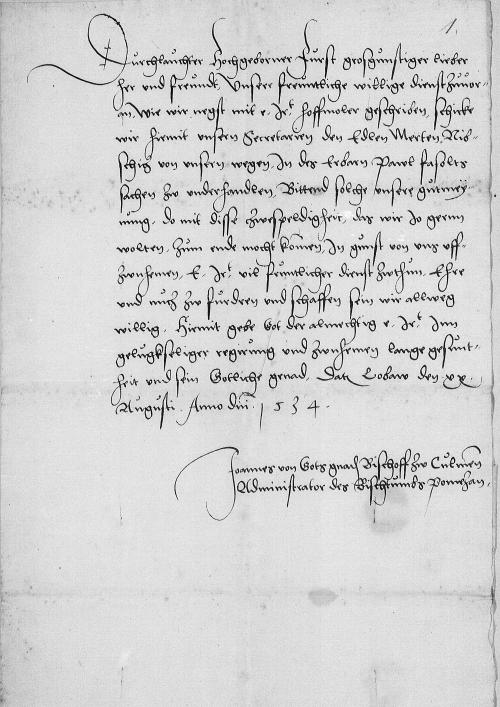 1.
Durchlauchter Hochgeborner Furst grosgunstiger lieber
her und freundt, Unser freuntliche willige dienst zuuor-
an, wie wir negst mit e. Jr.t hoffmoler geschriben, schicke
wir hiemit unsern Secretarien den Edlen Merten Nib-
schitz von unsern wegen, In des Erbarn Pawl Fasolts
sachen zw underhandlen, Bittend solche unsere gutmey-
nung, do mit disse zwespeldigheit, das wir Jo gernn
wolten, zum ende mocht komen, In gunst von uns uff-
zwnhemen, E. Jr.t vil freuntlicher dienst zwthun, Ehre
und nutz zw furdren und schaffen sein wir allweg
willig. Hiemit gebe Got der almechtig e. Jr.t Inn
gelugkseliger regirung und zwnhemen lange gesunt-
heit und sein Gotliche genad, Dat Lobaw den xx.
Augusti. Anno dni. 1534.
Joannes von Gots gnad Bischoff zw Culmen
Administrator des Bischtumbs Pomezan.